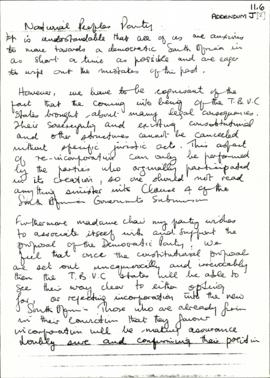 116
ADDENDUM J
National Peoples Party
It is understandable that all of us are anxious
to move towards a democratic South Africa in
as short a time as possible and are eager
to wipe out the mistakes of the past.
However, we have to be cognisant of the
fact that the coming into being of the T.B.V.C
States brought about many legal consequences.
Their Sovereignty and existing constitutional
and other structures cannot be cancelled
without specific juristic acts. This aspect
of re-incorporation can only be performed
by the parties who originally participated
in its creation, so we should not read
anything sinister into Clause 4 of the
South African Governments Submission
Furthermore madame chair my party wishes
to associate itself with and support the
proposal of the Democratic Party. We
feel that once the constitutional proposals
are set out unequivocally and irrevocably
then the T.B.V.C States will be able to
see their way clear to either opting
for or rejecting incorporation into the new
South Africa. Those who are already firm
in their conviction that they favour
incorporation will be making assurance
doubly sure and confirming their position